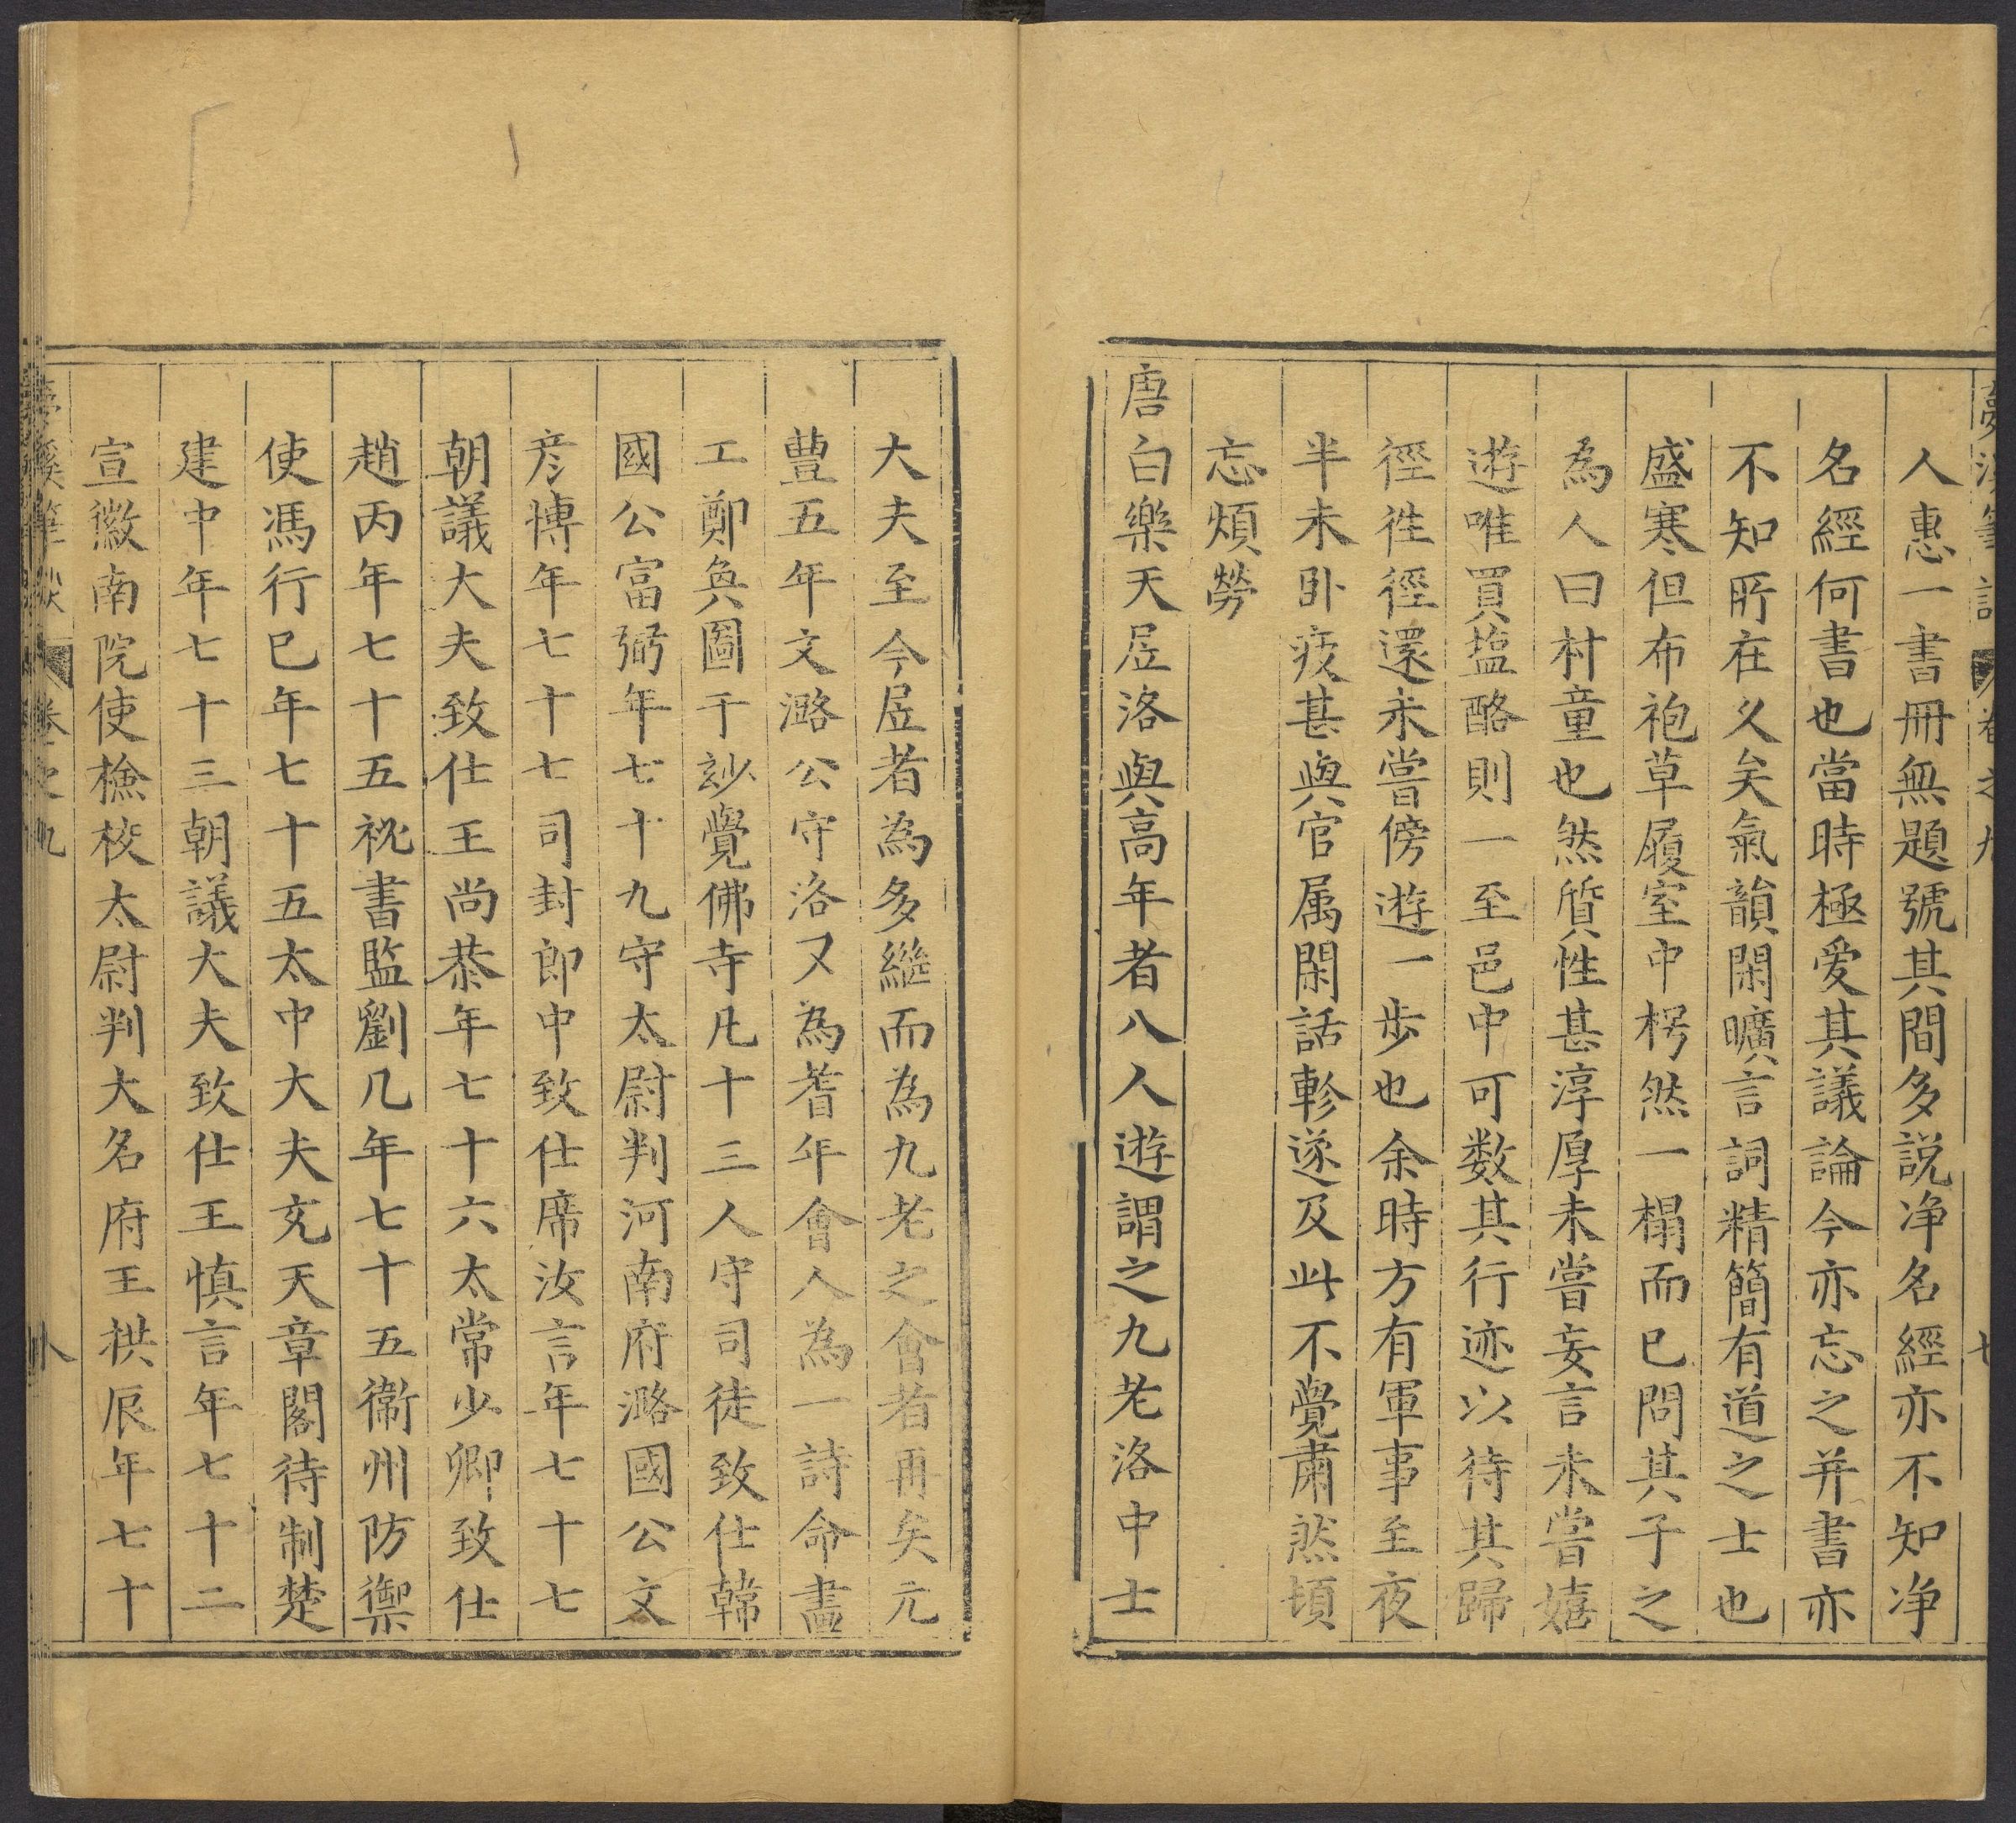 人惠一書冊無題號其間多説净名經亦不知净
名經何書也當時極爱其議論今亦忘之并書亦
不知所在久矣氣韻閑曠言詞精簡有道之士也
盛寒但布袍草履室中枵然一榻而已問其子之
為人曰村童也然質性甚淳厚未嘗妄言未嘗嬉
遊唯買塩酪則一至邑中可数其行迹以待其歸
徑徃徑還未嘗傍遊一步也余時方有軍事至夜
半未卧疲甚與官属閑話軫遂及此不覺肅然頓
忘煩勞
唐白樂天居洛與高年者八人遊謂之九老洛中士
大夫至今居者為多繼而為九老之會者再矣元
豊五年文潞公守洛又為耆年會人為一詩命畫
工鄭奐圖于玅覺佛寺凡十三人守司徒致仕韓
國公富弼年七十九守太尉判河南府潞國公文
彦博年七十七司封郎中致仕席汝言年七十七
朝議大夫致仕王尚恭年七十六太常少卿致仕
趙丙年七十五祕書監劉几年七十五衛州防禦
使馮行已年七十五太中大夫充天章閣待制楚
建中年七十三朝議大夫致仕王慎言年七十二
宣徽南院使檢校太尉判大名府王拱辰年七十
夢溪筆談 卷之九 八